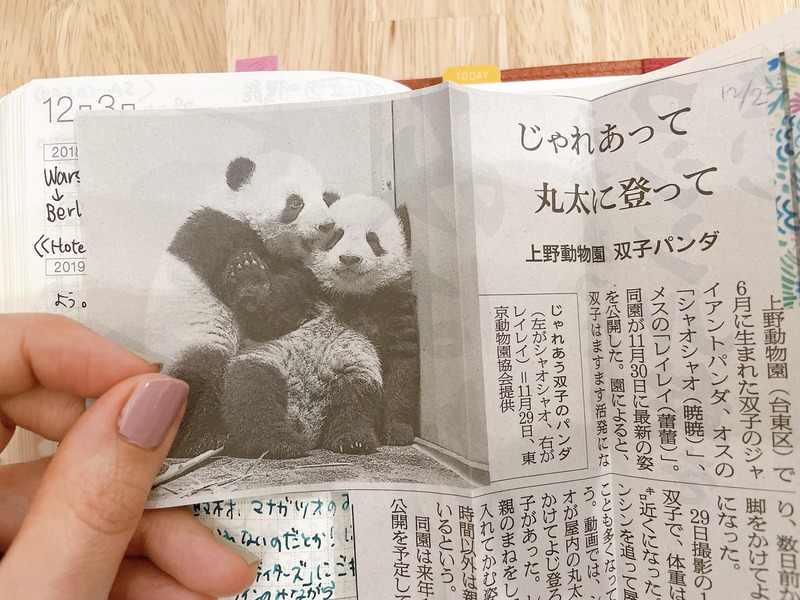 12月3日
TODAY
12/2
2018
Wars
↓
Berl
《Hote
2019
よう。
じゃれあって
丸太に登って
上野動物園 双子パンダ
じゃれあう双子のパンダ
(左がシャオシャオ、右が
レイレイ)=11月29日、東
京動物園協会提供
上野動物園(台東区)で
6月に生まれた双子のジャ
イアントパンダ、オスの
「シャオシャオ(暁暁)」、
メスの「レイレイ(蕾蕾)」。
同園が11月30日に最新の姿
を公開した。園によると、
双子はますます活発にな
り、数日前か
脚をかけてよ
になった。
29日撮影の1
双子で、体重は
近くになった。
ンシンを追って屋
ことも多くなって
う。動画では、
オが屋内の丸太
かけてよじ登る
子があった。
親のまねをし
入れてかむ姿
時間以外は親
いるという。
同園は来年
公開を予定して
マナガツオの
ないのだとか!